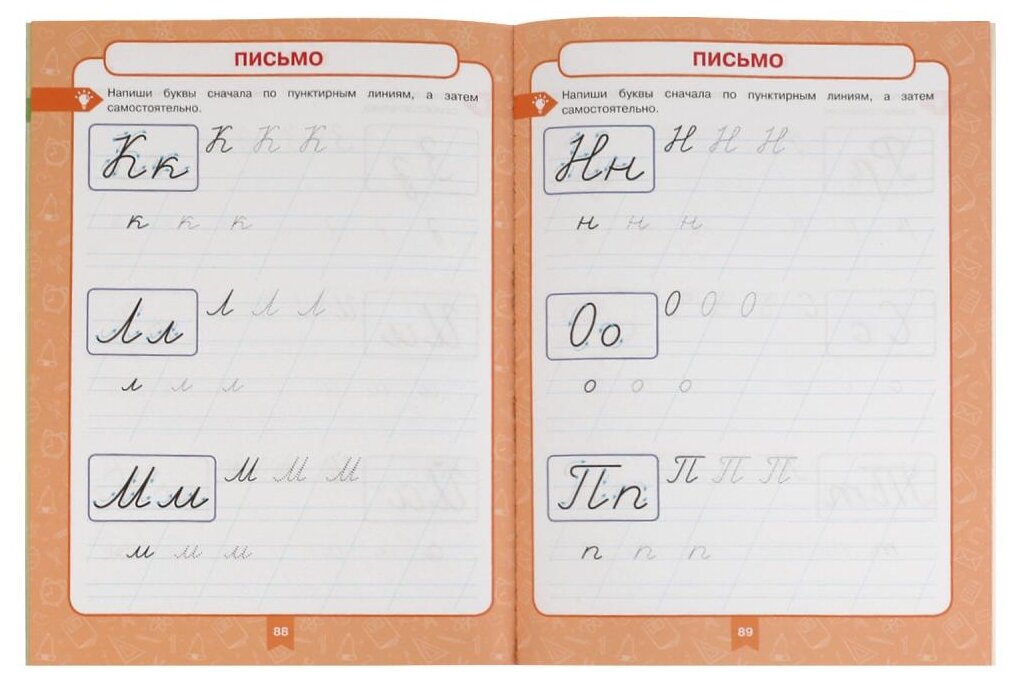 ПИСЬМО
Напиши буквы сначала по пунктирным линиям, а затем
самостоятельно.
Кк К К К
к к к
Лл Л Л Л
л л л
Мм М М М
м м м
88
ПИСЬМО
Напиши буквы сначала по пунктирным линиям, а затем
самостоятельно.
Нн Н Н Н
н н н
Оо О О О
о о о
Пп П П П
п п п
89